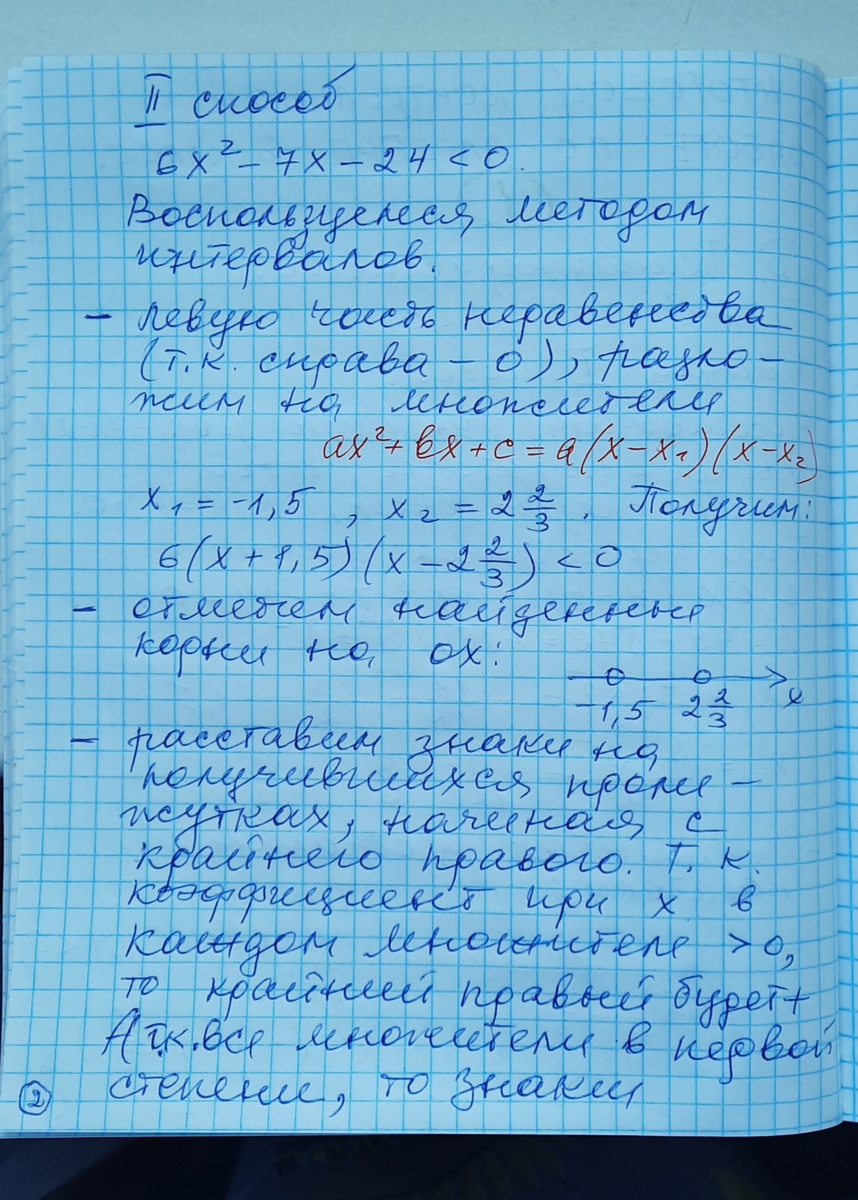 II способ
6x² - 7x - 24 < 0.
Воспользуемся методом
интервалов.
- левую часть неравенства
(т.к. справа - 0), разло-
жим на множители
ax² + bx + c = a(x - x₁)(x - x₂)
x₁ = -1,5 , x₂ = 2 2/3 . Получим:
6(x + 1,5)(x - 2 2/3) < 0
- отметим найденные
корни на ох:
-1,5 2 2/3 x
- расставим знаки на
получившихся проме-
жутках, начиная с
крайнего правого. Т.к.
коэффициент при x в
каждом множителе > 0,
то крайний правый будет +
А т.к. все множители в первой
степени, то знаки
2